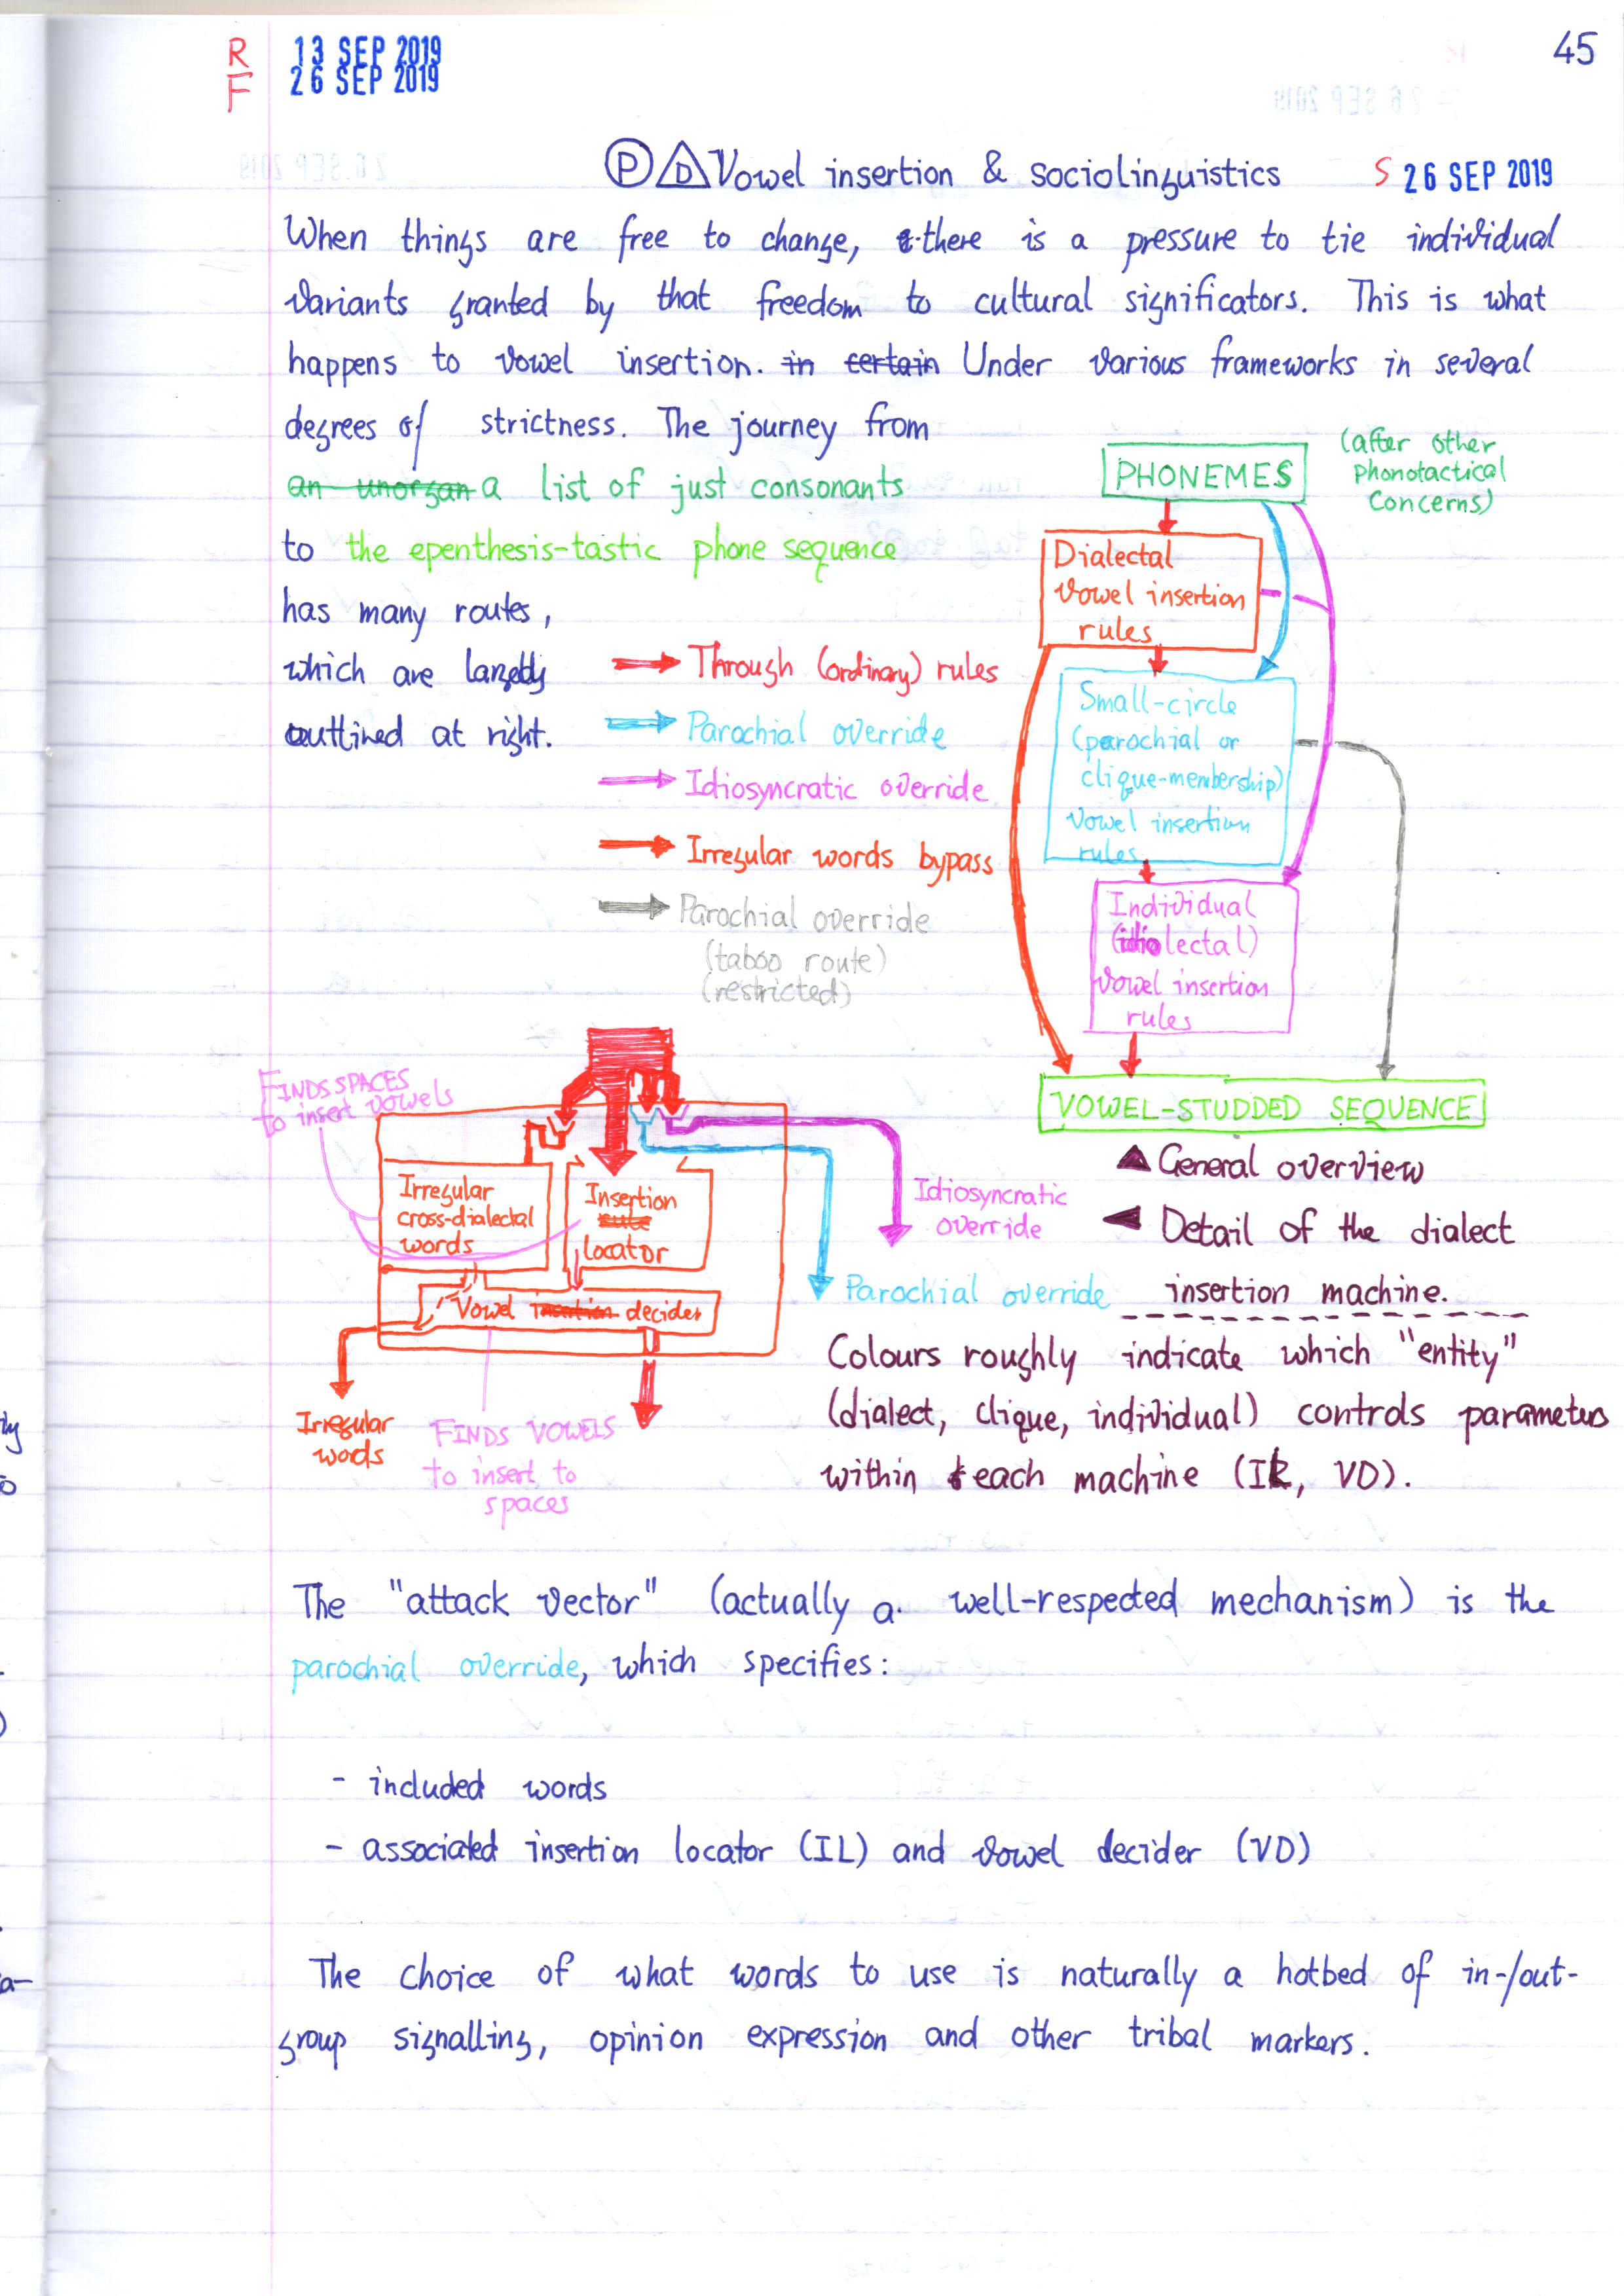 R 13 SEP 2019
F 26 SEP 2019
45
P D Vowel insertion & sociolinguistics S 26 SEP 2019
When things are free to change, there is a pressure to tie individual
variants granted by that freedom to cultural significators. This is what
happens to vowel insertion. in certain Under various frameworks in several
degrees of strictness. The journey from
an unorgan a list of just consonants
to the epenthesis-tastic phone sequence
has many routes,
which are largely
outlined at right.
Through (ordinary) rules
Parochial override
Idiosyncratic override
Irregular words bypass
Parochial override
(taboo route)
(restricted)
PHONEMES
(after other
phonotactical
concerns)
Dialectal
vowel insertion
rules
Small-circle
(parochial or
clique-membership)
vowel insertion
rules
Individual
(idiolectal)
vowel insertion
rules
VOWEL-STUDDED SEQUENCE
General overview
Detail of the dialect
insertion machine.
FINDS SPACES
to insert vowels
Irregular
cross-dialectal
words
Insertion
rule
locator
Vowel insertion decider
Irregular
words
FINDS VOWELS
to insert to
spaces
Idiosyncratic
override
Parochial override
Colours roughly indicate which "entity"
(dialect, clique, individual) controls parameters
within each machine (IL, VD).
The "attack vector" (actually a well-respected mechanism) is the
parochial override, which specifies:
- included words
- associated insertion locator (IL) and vowel decider (VD)
The choice of what words to use is naturally a hotbed of in-/out-
group signalling, opinion expression and other tribal markers.